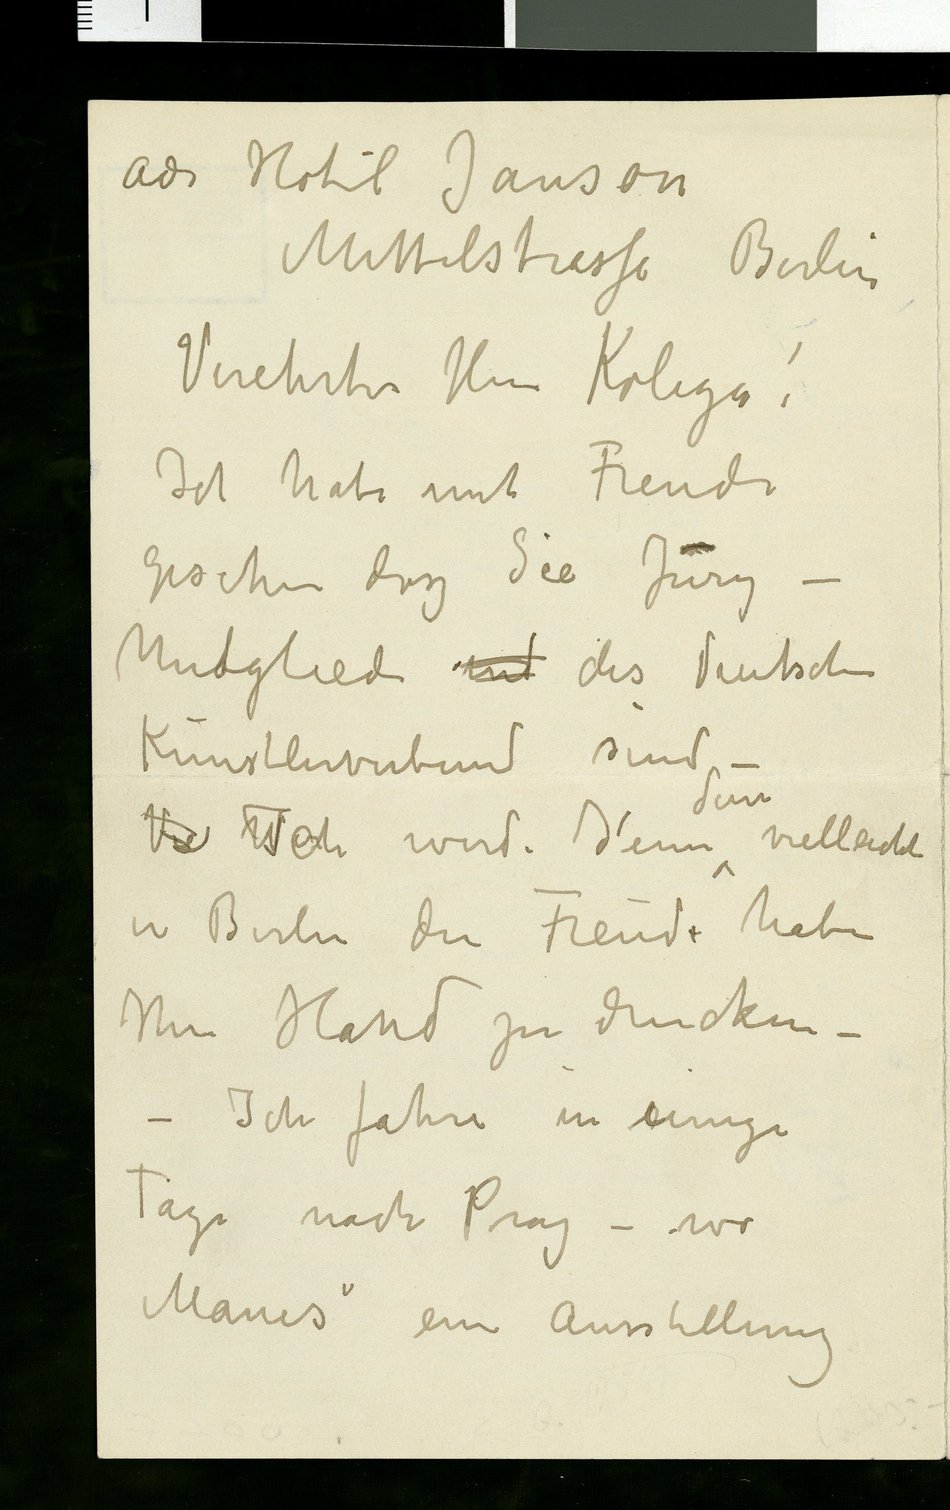 adr Hotel Janson
Mittelstrasse Berlin
Verehrter Herr Kolega!
Ich habe mit Freude
gesehen dasz Sie Jury –
Mitglied des deutschen
Künstlerverbund sind –
Ich werde denn dann vielleicht
in Berlin die Freude haben
Ihre Hand zu drucken –
– Ich fahre in einige
Tage nach Prag – wo
Manes" eine Ausstellung